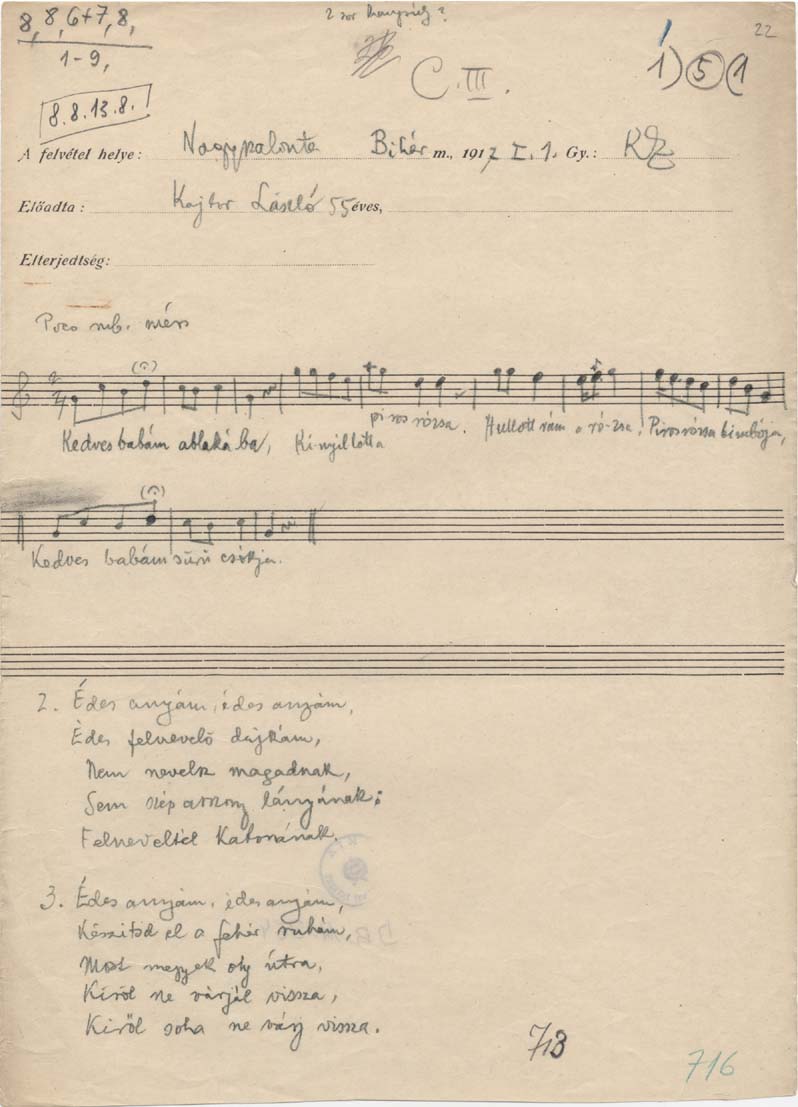 8, 8, 6+7, 8,
1-9,
8.8.13.8.
2 sor
C. III.
1) 5 (1
22
A felvétel helye: Nagyszalonta Bihar m., 1917 I. 1. Gy.: KZ
Előadta: Kajtor László 55 éves,
Elterjedtség:
Poco rub.
Kedves babám ablakába, Kinyillotta piros rózsa. Hullott rám a rózsa, Piros rózsa bimbója,
Kedves babám sűrű csókja.
2. Édes anyám, édes anyám,
Édes felnevelő dajkám,
Nem nevelsz magadnak,
Sem szép asszony lányának:
Felneveltél Katonának.
3. Édes anyám, édes anyám,
Készitsd el a fehér ruhám,
Most megyek oly útra,
Kiről ne várjál vissza,
Kiről soha ne várj vissza.
713
716